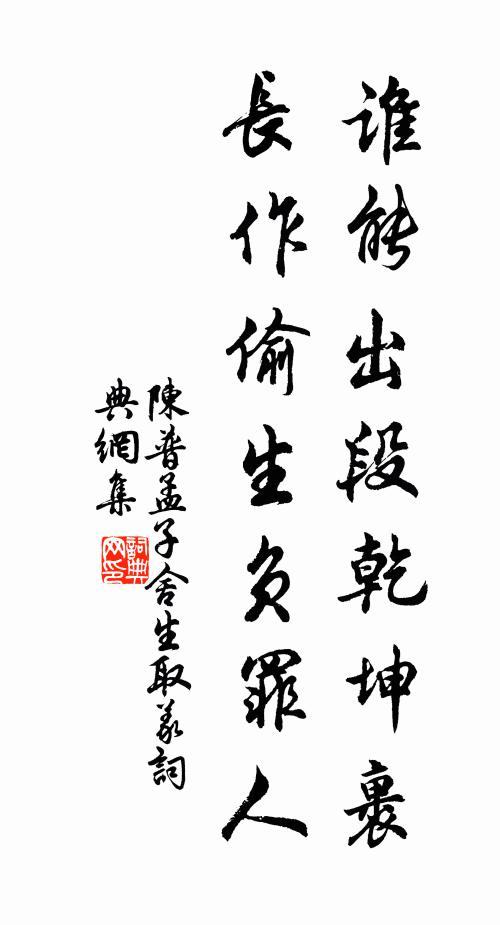 誰能出段乾坤裹
長作偷生負罪人
陳普孟子舍生取義詞
典網集
詞典
网印